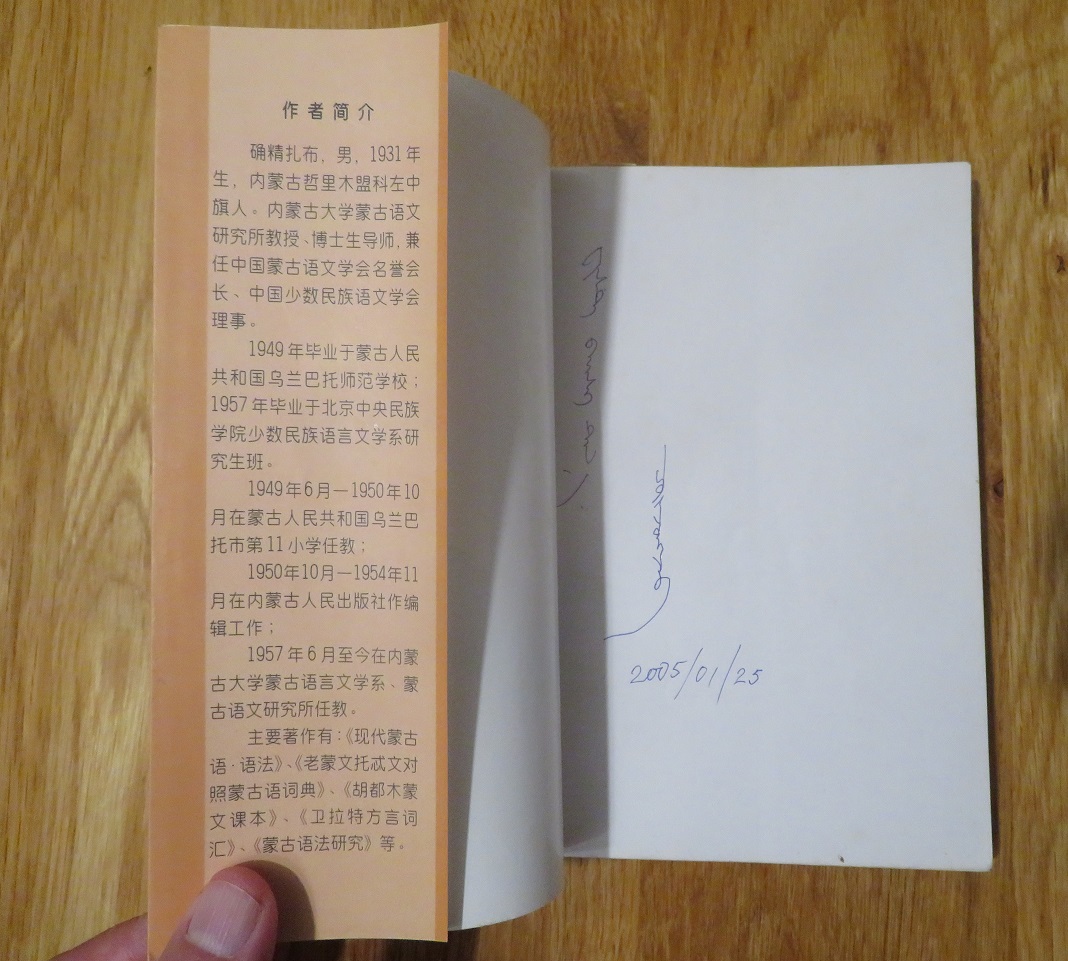 作者简介
确精扎布，男，1931年
生，内蒙古哲里木盟科左中
旗人。内蒙古大学蒙古语文
研究所教授、博士生导师，兼
任中国蒙古语文学会名誉会
长、中国少数民族语文学会
理事。
1949年毕业于蒙古人民
共和国乌兰巴托师范学校；
1957年毕业于北京中央民族
学院少数民族语言文学系研
究生班。
1949年6月—1950年10
月在蒙古人民共和国乌兰巴
托市第11小学任教；
1950年10月—1954年11
月在内蒙古人民出版社作编
辑工作；
1957年6月至今在内蒙
古大学蒙古语言文学系、蒙
古语文研究所任教。
主要著作有：《现代蒙古
语·语法》、《老蒙文托忒文对
照蒙古语词典》、《胡都木蒙
文课本》、《卫拉特方言词
汇》、《蒙古语法研究》等。
2005/01/25